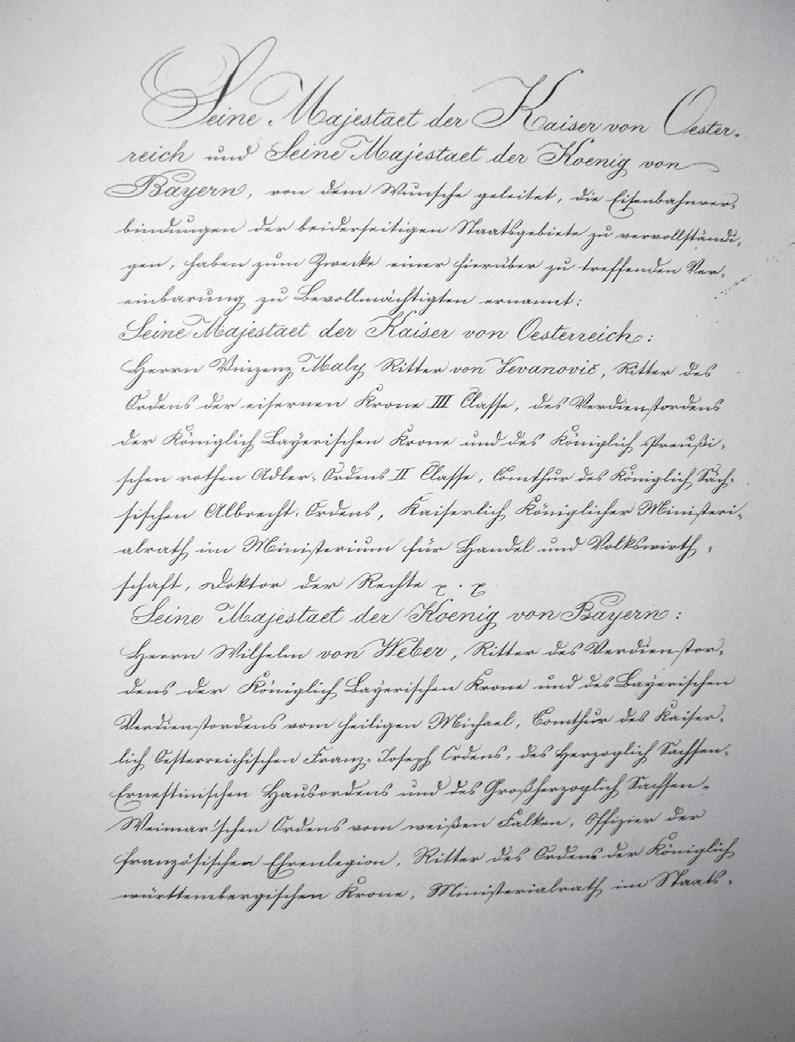 Seine Majestaet der Kaiser von Oester-
reich und Seine Majestaet der Koenig von
Bayern, von dem Wunsche geleitet, die Eisenbahnver-
bindungen der beiderseitigen Staatsgebiete zu vervollständi-
gen, haben zum Zwecke einer hierüber zu treffenden Ver-
einbarung zu Bevollmächtigten ernannt:
Seine Majestaet der Kaiser von Oesterreich:
Herrn Vinzenz Maly Ritter von Vevanovič, Ritter des
Ordens der eisernen Krone III Classe, des Verdienstordens
der Königlich Bayerischen Krone und des Königlich Preußi-
schen rothen Adler-Ordens II Classe, Comthur des Königlich Säch-
sischen Albrecht-Ordens, Kaiserlich Königlicher Ministeri-
alrath im Ministerium für Handel und Volkswirth-
schaft, Doktor der Rechte
Seine Majestaet der Koenig von Bayern:
Herrn Wilhelm von Weber, Ritter des Verdienstor-
dens der Königlich Bayerischen Krone und des Bayerischen
Verdienstordens vom heiligen Michael, Comthur des Kaiser-
lich Oesterreichischen Franz-Joseph Ordens, des Herzoglich Sachsen-
Ernestinischen Hausordens und des Großherzoglich Sachsen-
Weimar'schen Ordens vom weißen Falken, Offizier der
französischen Ehrenlegion, Ritter des Ordens der Königlich
württembergischen Krone, Ministerialrath im Staats-